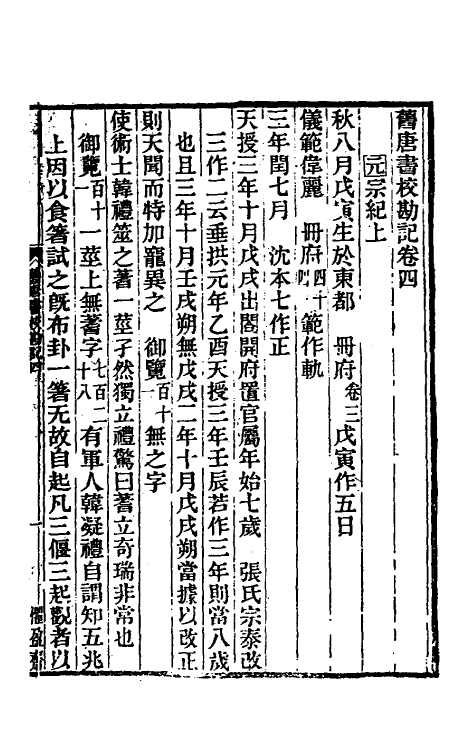 舊唐書校勘記卷四
元宗紀上
秋八月戊寅生於東都　冊府卷三戊寅作五日
儀範偉麗　冊府四十四範作軌
三年閏七月　沈本七作正
天授三年十月戊戌出閤開府置官屬年始七歲　張氏宗泰改
三作二云垂拱元年乙酉天授三年壬辰若作三年則當八歲
也且三年十月壬戌朔無戊戌二年十月戊戌朔當據以改正
則天聞而特加寵異之　御覽百十一無之字
使術士韓禮筮之蓍一莖孑然獨立禮驚曰蓍立奇瑞非常也
御覽百十一一莖上無蓍字七百二十八有軍人韓凝禮自謂知五兆
上因以食箸試之旣布卦一箸无故自起凡三偃三起觀者以
懼盈齋